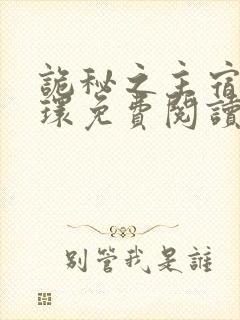 詭秘之主宿
環免費閱讀
別管我是誰